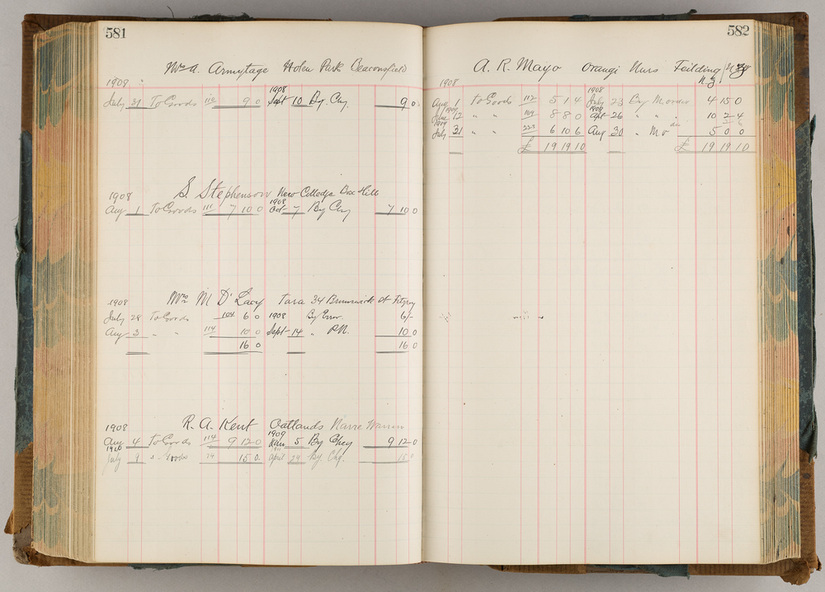 581
Mr A. Armytage Holm Park Beaconsfield
1909
July 21 To Goods 112 9 0 1908 Sept 10 By Chq 9 0
S Stephenson New College Box Hill
1908
Aug 1 To Goods 111 7 10 0 1908 Oct 7 By Chq 7 10 0
Mrs M D'Lacy Tara 34 Brunswick St Fitzroy
1908
July 28 To Goods 108 6 0 1908 By Error 6/-
Aug 3 " " 114 10 0 Sept 14 " P.N. 10 0
16 0 16 0
R. A. Kent Oatlands Narre Warren
1908
Aug 4 To Goods 114 9 12 0 1909 Jan 5 By Cheq 9 12 0
1910 July 1 " Goods 19 15 0 April 29 By Chq. 15 0
582
A. R. Mayo Orangi Nurs Feilding N.Z.
1908
Aug 1 To Goods 112 5 1 4 1908 July 23 By Mo 4 15 0
June 12 " " 209 8 8 0 1909 Apl 26 " " 10 2 4
1909 July 31 " " 223 6 10 6 Aug 30 " Mo 5 0 0
£ 19 19 10 £ 19 19 10